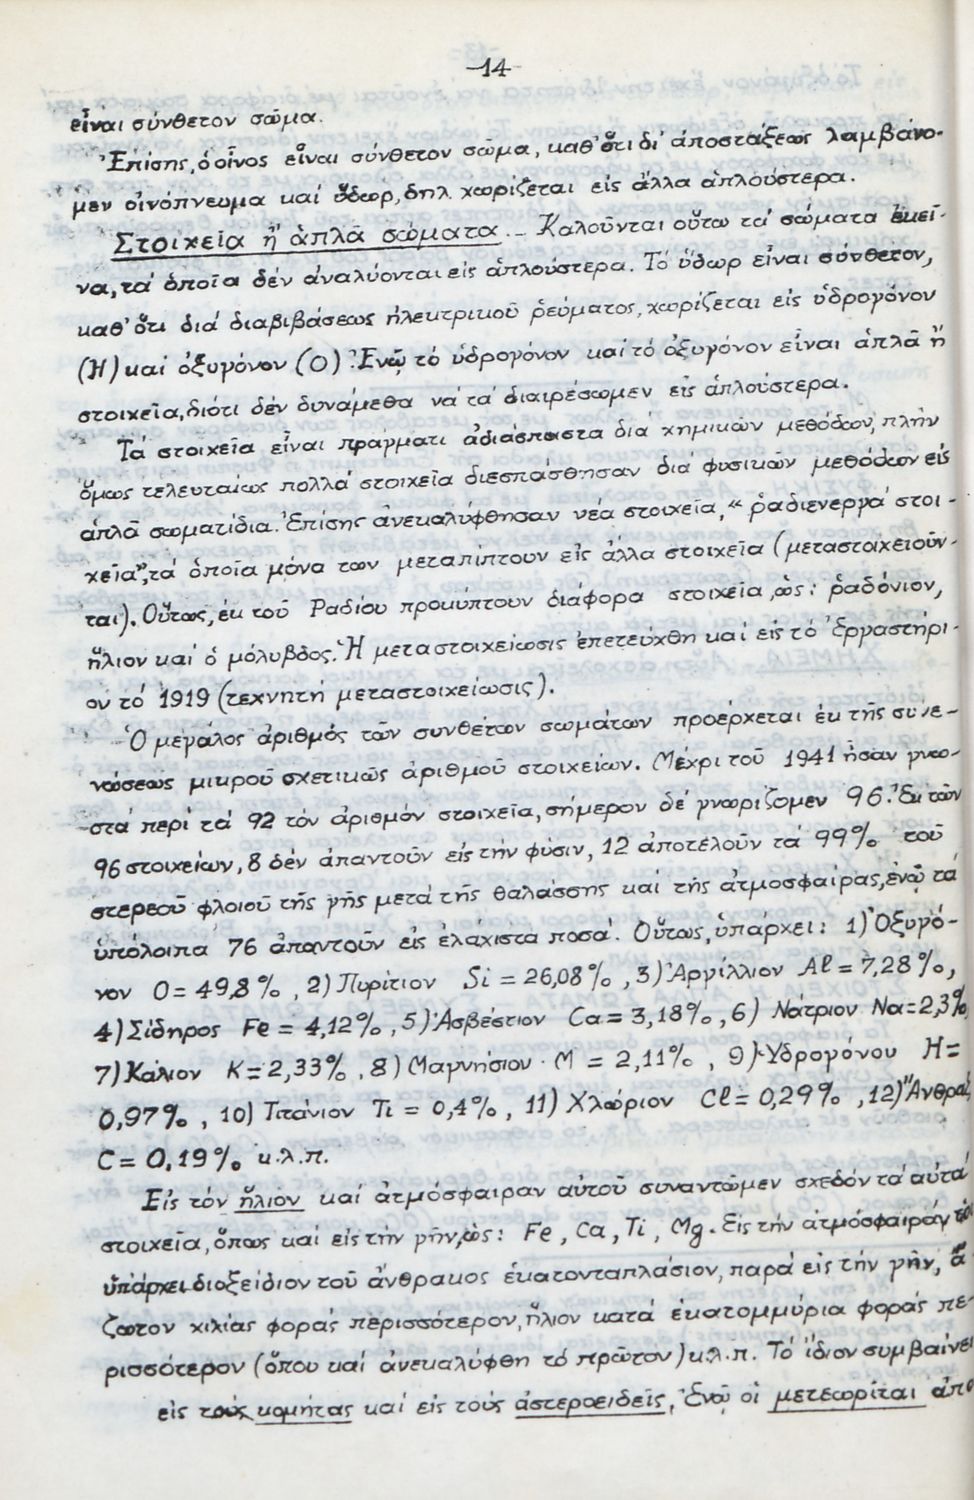 -14-
εἶναι σύνθετον σῶμα.
Ἐπίσης, ὁ οἶνος εἶναι σύνθετον σῶμα, καθ' ὅτι δι' ἀποστάξεως λαμβάνο-
μεν οἰνόπνευμα καί ὕδωρ, δηλ. χωρίζεται εἰς ἄλλα ἁπλούστερα.
Στοιχεῖα ἤ ἁπλᾶ σώματα. - Καλοῦνται οὕτω τά σώματα ἐκεῖ-
να, τά ὁποῖα δέν ἀναλύονται εἰς ἁπλούστερα. Τό ὕδωρ εἶναι σύνθετον,
καθ' ὅτι διά διαβιβάσεως ἠλεκτρικοῦ ῥεύματος, χωρίζεται εἰς ὑδρογόνον
(Η) καί ὀξυγόνον (Ο). Ἐνῷ τό ὑδρογόνον καί τό ὀξυγόνον εἶναι ἁπλᾶ ἤ
στοιχεῖα, διότι δέν δυνάμεθα νά τά διαιρέσωμεν εἰς ἁπλούστερα.
Τά στοιχεῖα εἶναι πραγματι ἀδιάσπαστα διά χημικῶν μεθόδων, πλήν
ὅμως τελευταίως πολλά στοιχεῖα διεσπάσθησαν διά φυσικῶν μεθόδων εἰς
ἁπλᾶ σωματίδια. Ἐπίσης ἀνεκαλύφθησαν νέα στοιχεῖα, "ῥαδιενεργά στοι-
χεῖα", τά ὁποῖα μόνα των μεταπίπτουν εἰς ἄλλα στοιχεῖα (μεταστοιχειοῦν-
ται). Οὕτως, ἐκ τοῦ Ραδίου προκύπτουν διάφορα στοιχεῖα, ὡς: ῥαδόνιον,
ἥλιον καί ὁ μόλυβδος. Ἡ μεταστοιχείωσις ἐπετεύχθη καί εἰς τό ἐργαστήρι-
ον τό 1919 (τεχνητή μεταστοιχείωσις).
Ὁ μεγάλος ἀριθμός τῶν συνθέτων σωμάτων προέρχεται ἐκ τῆς συνε-
νώσεως μικροῦ σχετικῶς ἀριθμοῦ στοιχείων. Μέχρι τοῦ 1941 ἦσαν γνω-
στά περί τά 92 τόν ἀριθμόν στοιχεῖα, σήμερον δέ γνωρίζομεν 96. Ἐκ τῶν
96 στοιχείων, 8 δέν ἀπαντοῦν εἰς τήν φύσιν, 12 ἀποτελοῦν τά 99% τοῦ
στερεοῦ φλοιοῦ τῆς γῆς μετά τῆς θαλάσσης καί τῆς ἀτμοσφαίρας, ἐνῷ τά
ὑπόλοιπα 76 ἀπαντοῦν εἰς ἐλάχιστα ποσά. Οὕτως, ὑπάρχει: 1) Ὀξυγό-
νον Ο = 49,8%, 2) Πυρίτιον Si = 26,08%, 3) Ἀργίλλιον Al = 7,28%,
4) Σίδηρος Fe = 4,12%, 5) Ἀσβέστιον Ca = 3,18%, 6) Νάτριον Να = 2,3%
7) Κάλιον Κ = 2,33%, 8) Μαγνήσιον Μ = 2,11%, 9) Ὑδρογόνου Η =
0,97%, 10) Τιτάνιον Ti = 0,4%, 11) Χλώριον Cl = 0,29%, 12) Ἄνθραξ
C = 0,19% κ.λ.π.
Εἰς τόν ἥλιον καί ἀτμόσφαιραν αὐτοῦ συναντῶμεν σχεδόν τά αὐτά
στοιχεῖα, ὅπως καί εἰς τήν γῆν, ὡς: Fe, Ca, Ti, Mg. Εἰς τήν ἀτμόσφαιράν του
ὑπάρχει διοξείδιον τοῦ ἄνθρακος ἑκατονταπλάσιον, παρά εἰς τήν γῆν, ἄ
ζωτον χιλίας φοράς περισσότερον, ἥλιον κατά ἑκατομμύρια φοράς πε-
ρισσότερον (ὅπου καί ἀνεκαλύφθη τό πρῶτον) κ.λ.π. Τό ἴδιον συμβαίνει
εἰς τούς κομήτας καί εἰς τούς ἀστεροειδεῖς, Ἐνῷ οἱ μετεωρῖται ἀπο